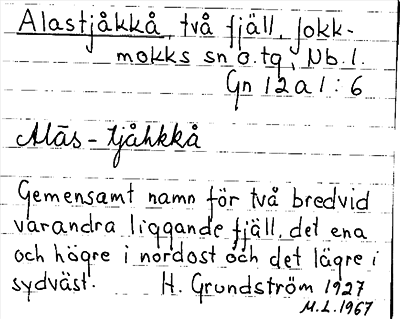 Alastjåkkå, två fjäll, Jokk-
mokks sn o. tg, Nb. l.
Gn 12 a 1 : 6
Alās - tjåhkkå
Gemensamt namn för två bredvid
varandra liggande fjäll, det ena
och högre i nordost och det lägre i
sydväst. H. Grundström 1927
M.L. 1967